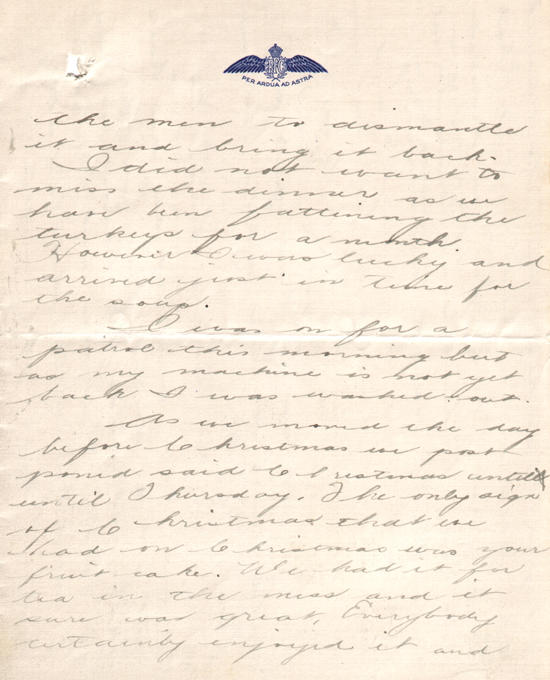 RFC
PER ARDUA AD ASTRA
the men to dismantle
it and bring it back.
I did not want to
miss the dinner as we
have been fattining the
turkeys for a month.
However I was lucky and
arrived just in time for
the soup.
I was on for a
patrol this morning but
as my machine is not yet
back I was washed out.
As we moved the day
before Christmas we post
poned said Christmas
until Thursday. The only sign
of Christmas that we
had on Christmas was your
fruit cake. We had it for
tea in the mess and it
sure was great. Everybody
certainly enjoyed it and